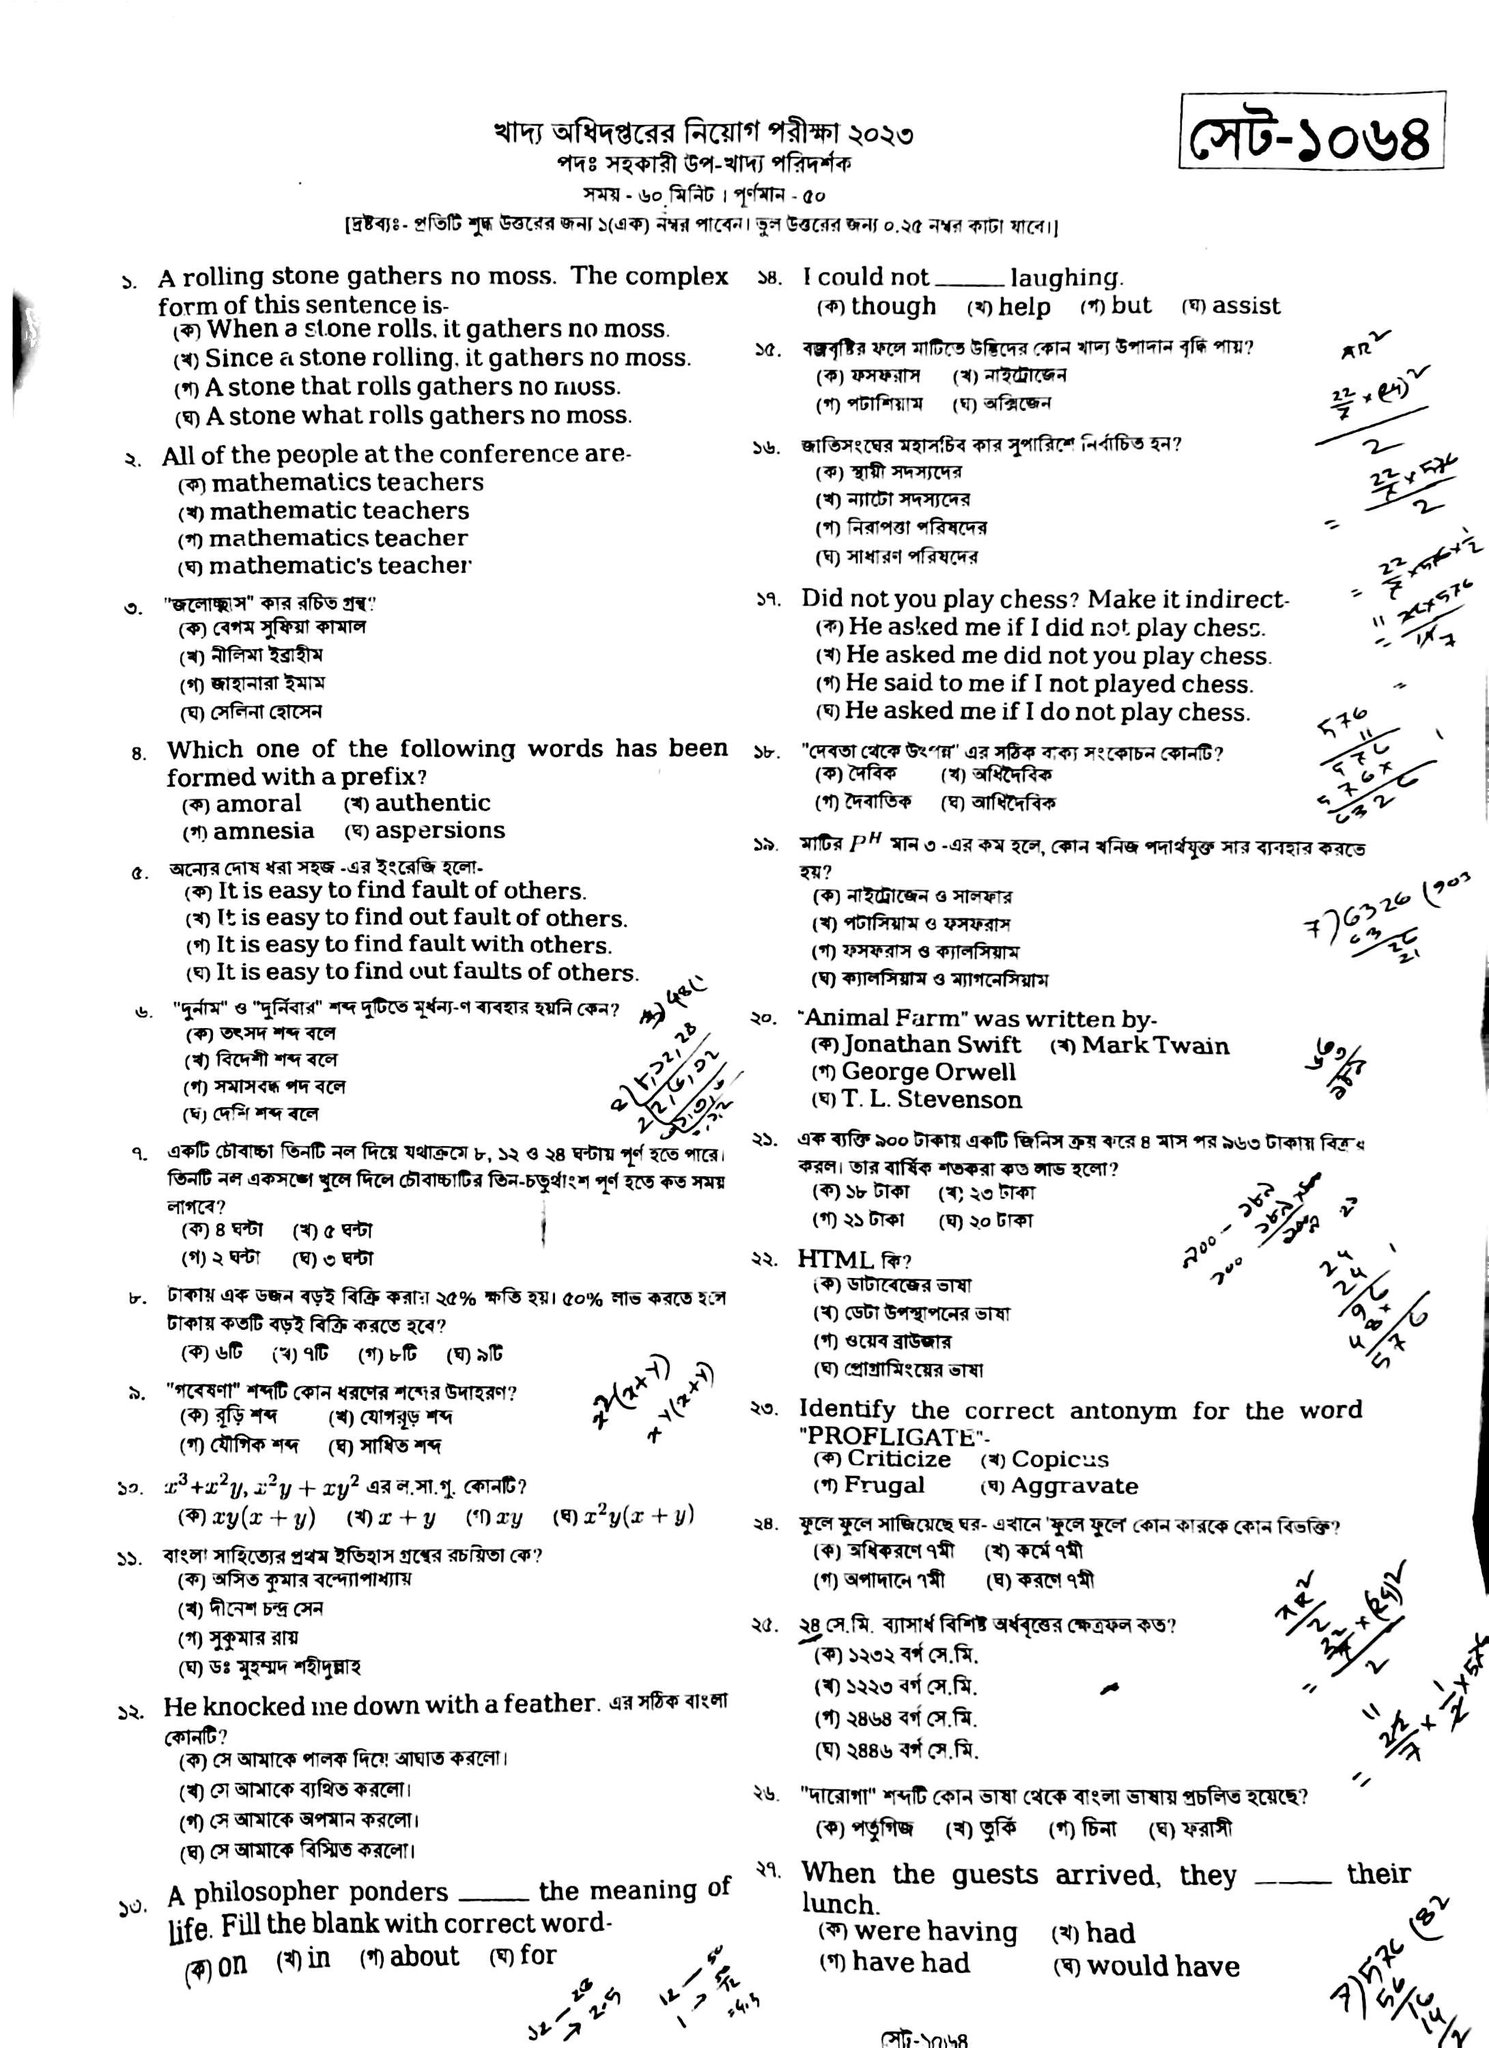 সেট-১০৬৪
খাদ্য অধিদপ্তরের নিয়োগ পরীক্ষা ২০২৩
পদঃ সহকারী উপ-খাদ্য পরিদর্শক
সময় - ৬০ মিনিট। পূর্ণমান - ৫০
[দ্রষ্টব্যঃ- প্রতিটি শুদ্ধ উত্তরের জন্য ১(এক) নম্বর পাবেন। ভুল উত্তরের জন্য ০.২৫ নম্বর কাটা যাবে।]
১. A rolling stone gathers no moss. The complex
form of this sentence is-
(ক) When a stone rolls, it gathers no moss.
(খ) Since a stone rolling, it gathers no moss.
(গ) A stone that rolls gathers no moss.
(ঘ) A stone what rolls gathers no moss.
২. All of the people at the conference are-
(ক) mathematics teachers
(খ) mathematic teachers
(গ) mathematics teacher
(ঘ) mathematic's teacher
৩. "জলোচ্ছ্বাস" কার রচিত গ্রন্থ?
(ক) বেগম সুফিয়া কামাল
(খ) নীলিমা ইব্রাহীম
(গ) জাহানারা ইমাম
(ঘ) সেলিনা হোসেন
৪. Which one of the following words has been
formed with a prefix?
(ক) amoral (খ) authentic
(গ) amnesia (ঘ) aspersions
৫. অন্যের দোষ ধরা সহজ -এর ইংরেজি হলো-
(ক) It is easy to find fault of others.
(খ) It is easy to find out fault of others.
(গ) It is easy to find fault with others.
(ঘ) It is easy to find out faults of others.
৬. "দুর্নাম" ও "দুর্নিবার" শব্দ দুটিতে মূর্ধন্য-ণ ব্যবহার হয়নি কেন?
(ক) তৎসদ শব্দ বলে
(খ) বিদেশী শব্দ বলে
(গ) সমাসবদ্ধ পদ বলে
(ঘ) দেশি শব্দ বলে
৭. একটি চৌবাচ্চা তিনটি নল দিয়ে যথাক্রমে ৮, ১২ ও ২৪ ঘন্টায় পূর্ণ হতে পারে।
তিনটি নল একসঙ্গে খুলে দিলে চৌবাচ্চাটির তিন-চতুর্থাংশ পূর্ণ হতে কত সময়
লাগবে?
(ক) ৪ ঘন্টা (খ) ৫ ঘন্টা
(গ) ২ ঘন্টা (ঘ) ৩ ঘন্টা
৮. টাকায় এক ডজন বড়ই বিক্রি করায় ২৫% ক্ষতি হয়। ৫০% লাভ করতে হলে
টাকায় কতটি বড়ই বিক্রি করতে হবে?
(ক) ৬টি (খ) ৭টি (গ) ৮টি (ঘ) ৯টি
৯. "গবেষণা" শব্দটি কোন ধরণের শব্দের উদাহরণ?
(ক) রূড়ি শব্দ (খ) যোগরূড় শব্দ
(গ) যৌগিক শব্দ (ঘ) সাধিত শব্দ
১০. x³+x²y, x²y + xy² এর ল.সা.গু. কোনটি?
(ক) xy(x + y) (খ) x + y (গ) xy (ঘ) x²y(x + y)
১১. বাংলা সাহিত্যের প্রথম ইতিহাস গ্রন্থের রচয়িতা কে?
(ক) অসিত কুমার বন্দ্যোপাধ্যায়
(খ) দীনেশ চন্দ্র সেন
(গ) সুকুমার রায়
(ঘ) ডঃ মুহম্মদ শহীদুল্লাহ
১২. He knocked me down with a feather. এর সঠিক বাংলা
কোনটি?
(ক) সে আমাকে পালক দিয়ে আঘাত করলো।
(খ) সে আমাকে ব্যথিত করলো।
(গ) সে আমাকে অপমান করলো।
(ঘ) সে আমাকে বিস্মিত করলো।
১৩. A philosopher ponders _____ the meaning of
life. Fill the blank with correct word-
(ক) on (খ) in (গ) about (ঘ) for
১৪. I could not _____ laughing.
(ক) though (খ) help (গ) but (ঘ) assist
১৫. বজ্রবৃষ্টির ফলে মাটিতে উদ্ভিদের কোন খাদ্য উপাদান বৃদ্ধি পায়?
(ক) ফসফরাস (খ) নাইট্রোজেন
(গ) পটাশিয়াম (ঘ) অক্সিজেন
১৬. জাতিসংঘের মহাসচিব কার সুপারিশে নির্বাচিত হন?
(ক) স্থায়ী সদস্যদের
(খ) ন্যাটো সদস্যদের
(গ) নিরাপত্তা পরিষদের
(ঘ) সাধারণ পরিষদের
১৭. Did not you play chess? Make it indirect-
(ক) He asked me if I did not play chess.
(খ) He asked me did not you play chess.
(গ) He said to me if I not played chess.
(ঘ) He asked me if I do not play chess.
১৮. "দেবতা থেকে উৎপন্ন" এর সঠিক বাক্য সংকোচন কোনটি?
(ক) দৈবিক (খ) অধিদৈবিক
(গ) দৈবাতিক (ঘ) আধিদৈবিক
১৯. মাটির P^H মান ৩ -এর কম হলে, কোন খনিজ পদার্থযুক্ত সার ব্যবহার করতে
হয়?
(ক) নাইট্রোজেন ও সালফার
(খ) পটাসিয়াম ও ফসফরাস
(গ) ফসফরাস ও ক্যালসিয়াম
(ঘ) ক্যালসিয়াম ও ম্যাগনেসিয়াম
২০. "Animal Farm" was written by-
(ক) Jonathan Swift (খ) Mark Twain
(গ) George Orwell
(ঘ) T. L. Stevenson
২১. এক ব্যক্তি ৯০০ টাকায় একটি জিনিস ক্রয় করে ৪ মাস পর ৯৬৩ টাকায় বিক্রয়
করল। তার বার্ষিক শতকরা কত লাভ হলো?
(ক) ১৮ টাকা (খ) ২৩ টাকা
(গ) ২১ টাকা (ঘ) ২০ টাকা
২২. HTML কি?
(ক) ডাটাবেজের ভাষা
(খ) ডেটা উপস্থাপনের ভাষা
(গ) ওয়েব ব্রাউজার
(ঘ) প্রোগ্রামিংয়ের ভাষা
২৩. Identify the correct antonym for the word
"PROFLIGATE"-
(ক) Criticize (খ) Copicus
(গ) Frugal (ঘ) Aggravate
২৪. ফুলে ফুলে সাজিয়েছে ঘর- এখানে 'ফুলে ফুলে' কোন কারকে কোন বিভক্তি?
(ক) অধিকরণে ৭মী (খ) কর্মে ৭মী
(গ) অপাদানে ৭মী (ঘ) করণে ৭মী
২৫. ২৪ সে.মি. ব্যাসার্ধ বিশিষ্ট অর্ধবৃত্তের ক্ষেত্রফল কত?
(ক) ১২৩২ বর্গ সে.মি.
(খ) ১২২৩ বর্গ সে.মি.
(গ) ২৪৬৪ বর্গ সে.মি.
(ঘ) ২৪৪৬ বর্গ সে.মি.
২৬. "দারোগা" শব্দটি কোন ভাষা থেকে বাংলা ভাষায় প্রচলিত হয়েছে?
(ক) পর্তুগিজ (খ) তুর্কি (গ) চিনা (ঘ) ফরাসী
২৭. When the guests arrived, they _____ their
lunch.
(ক) were having (খ) had
(গ) have had (ঘ) would have
সেট-১০৬৪